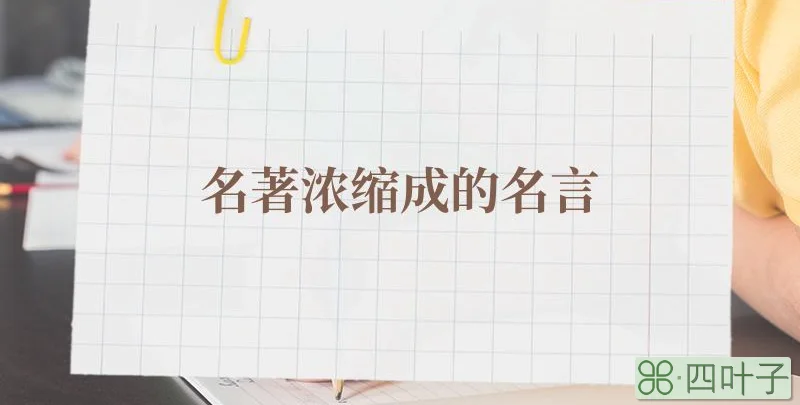 名著浓缩成的名言
四叶子